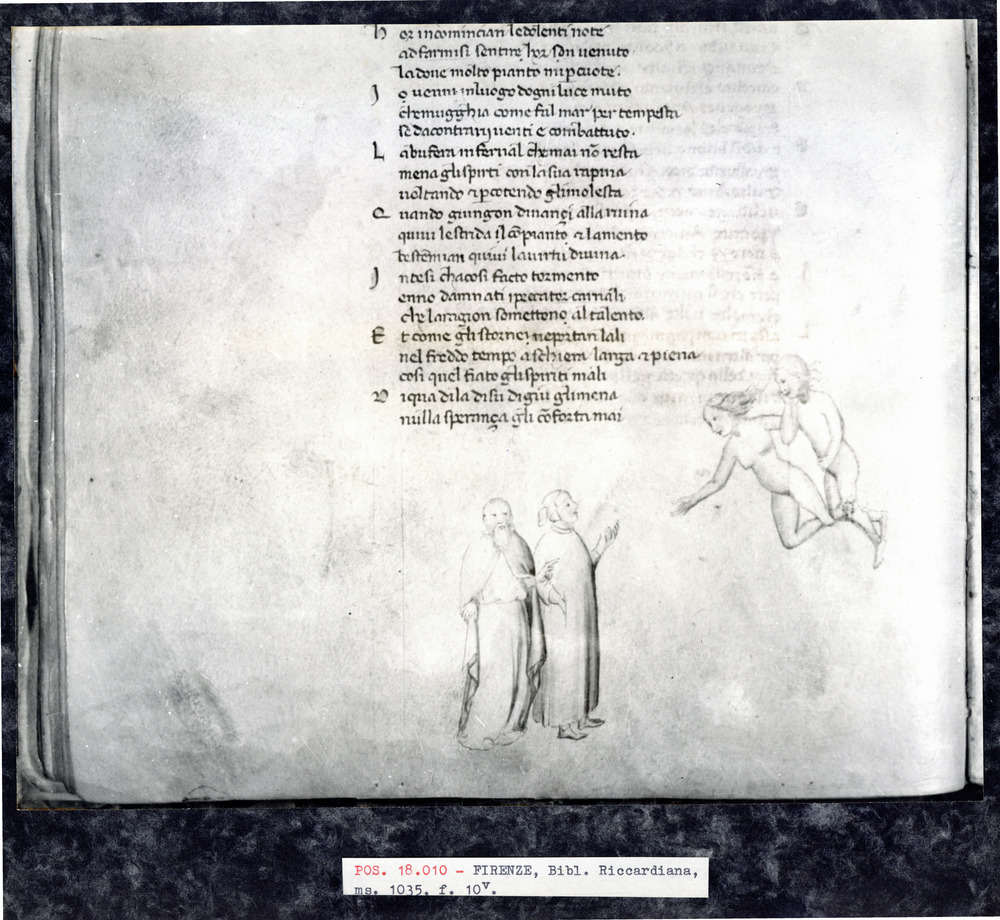 H or incomincian ledolenti note
adfarmisi sentire hor son uenuto
ladoue molto pianto mi percuote.
I o uenni inluogo dogni luce muto
chemugghia come ful mar per tempesta
se dacontrarij uenti e combattuto.
L abufera infernal che mai nō resta
mena glispirti con lasua rapina
uoltando ⁊ percotendo glimolesta
Q uando giungon dinançi alla ruina
quiui lestrida il cōpianto ⁊ lamento
bestemian quiui lauirtu diuina.
I ntesi chacosi facto tormento
enno dannati ipeccator carnali
che laragion somettono al talento.
E t come gli stornei neportan lali
nel freddo tempo a schiera larga ⁊ piena
cosi quel fiato glispiriti mali
D iqua dila disu digiu glimena
nulla sperança gli cōforta mai
POS. 18.010 – FIRENZE, Bibl. Riccardiana,
ms. 1035, f. 10v.